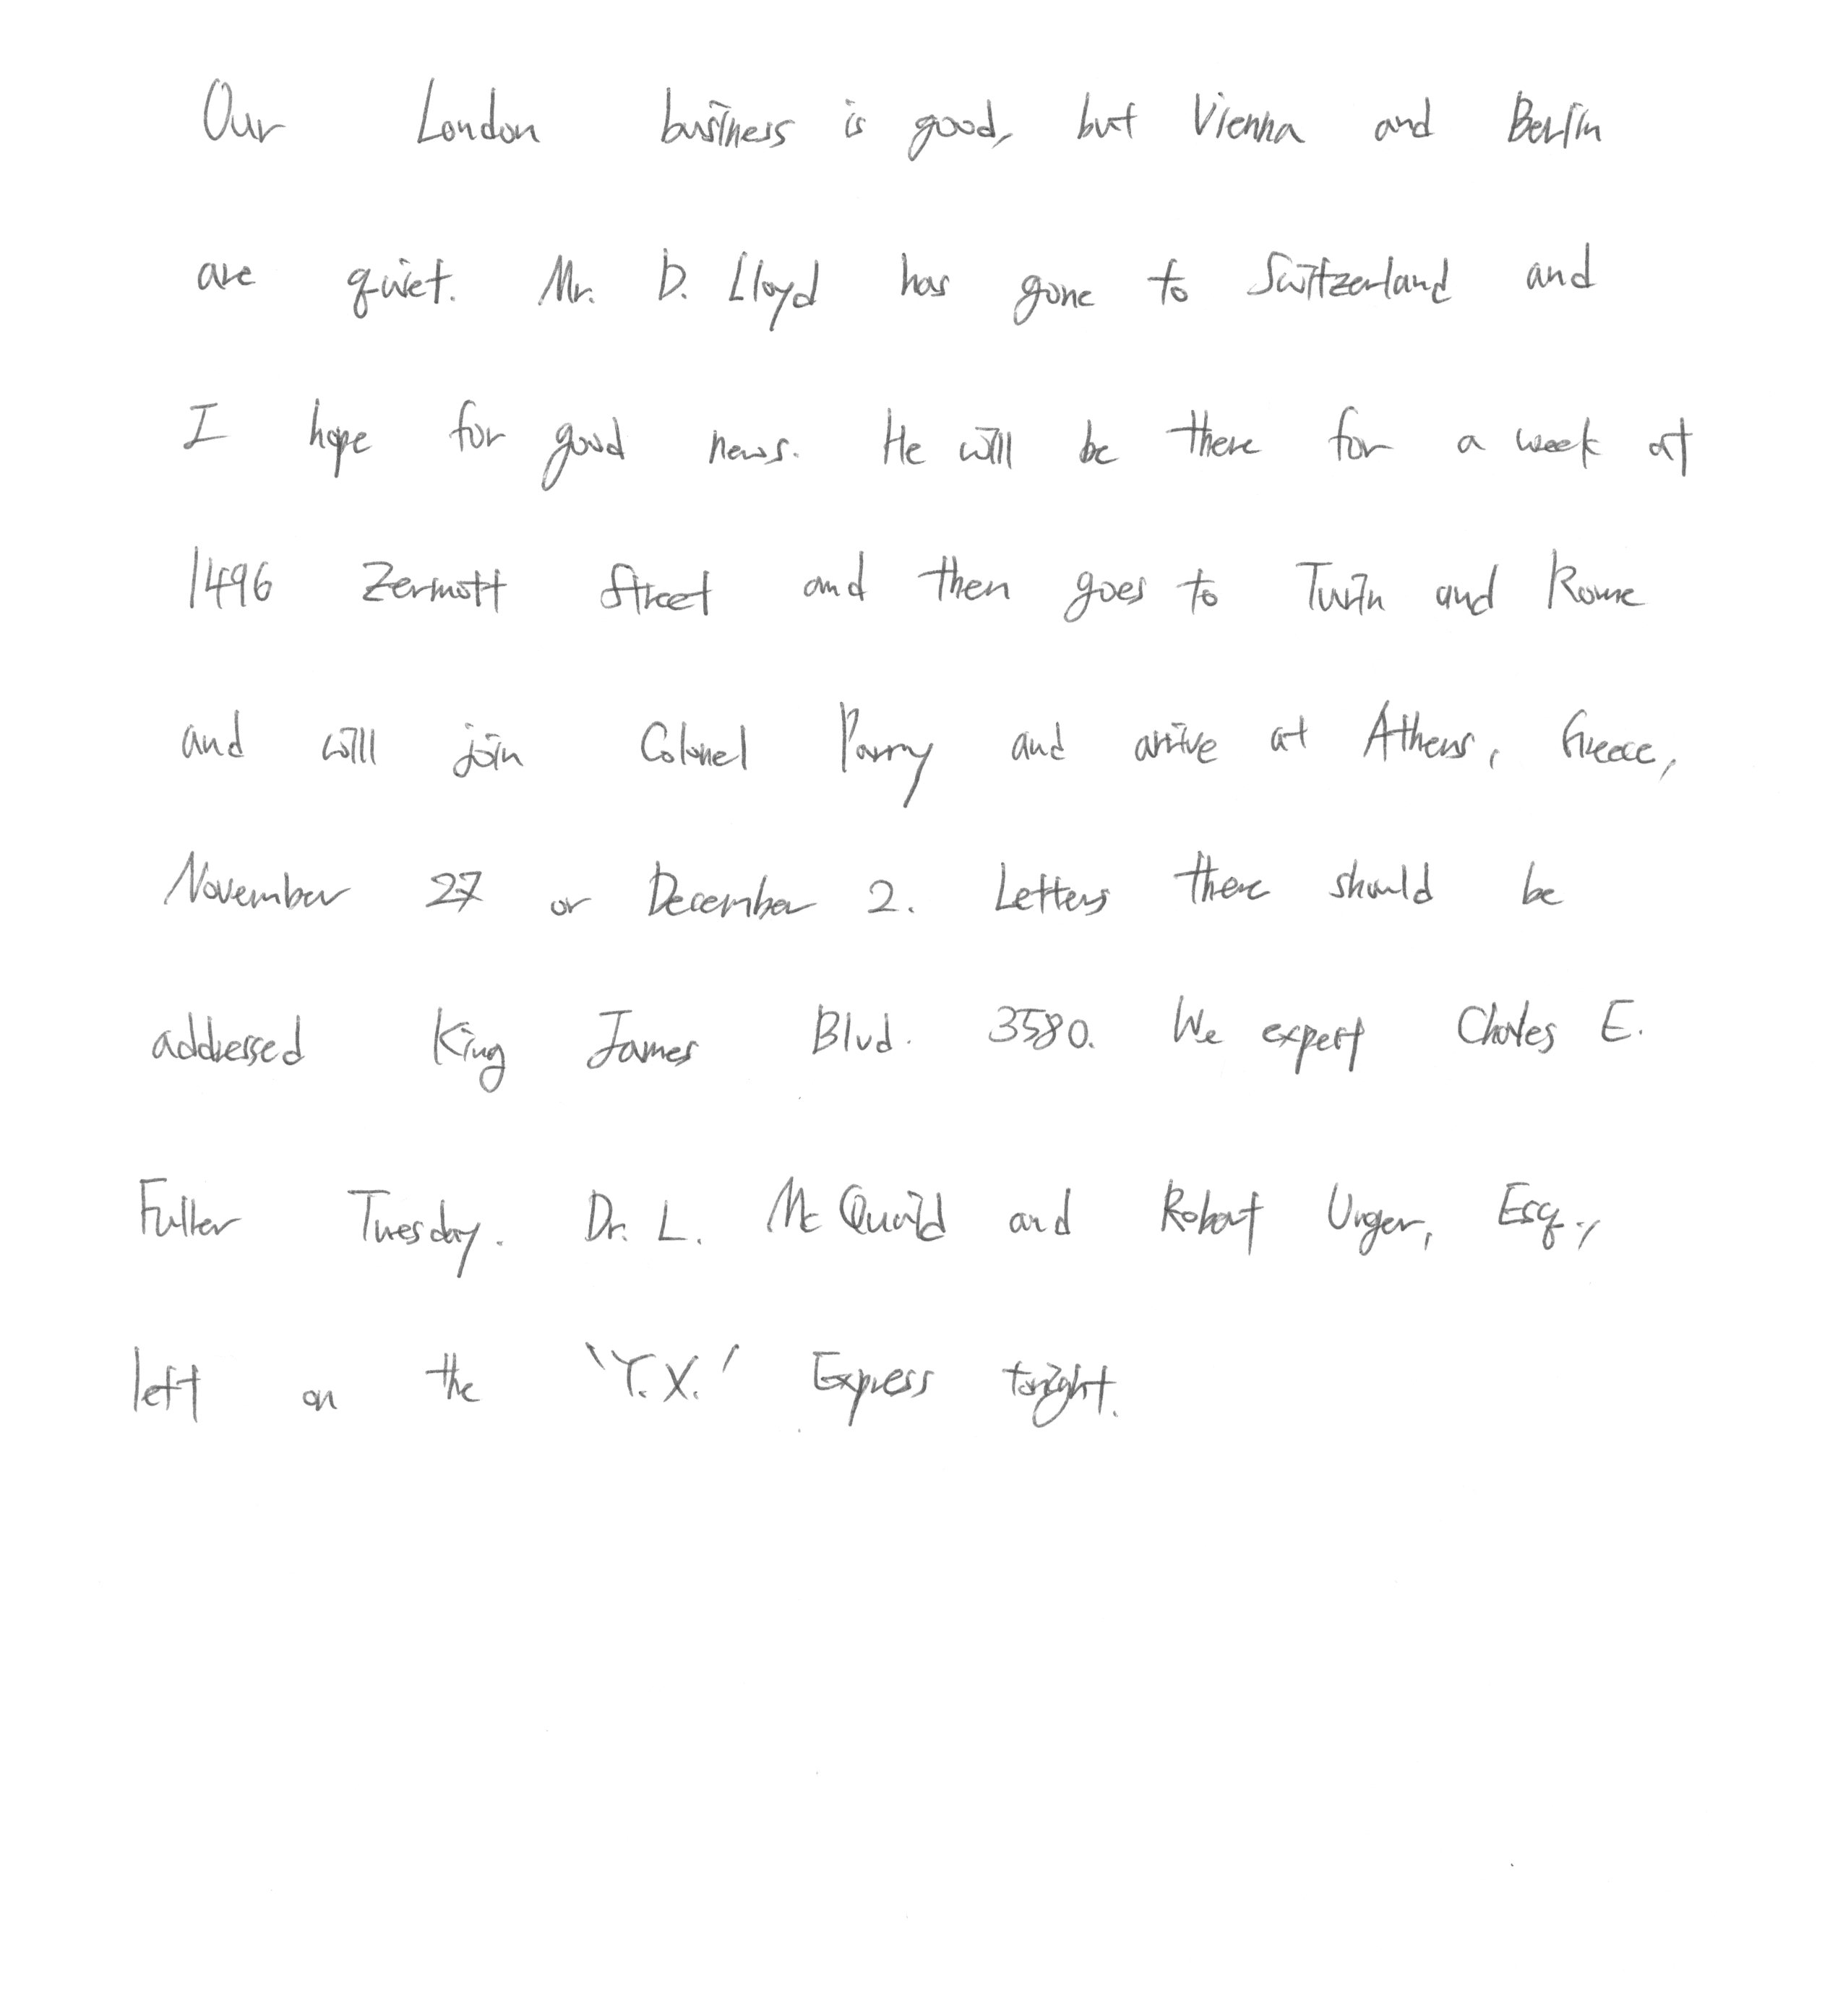 Our London business is good, but Vienna and Berlin
are quiet. Mr. D. Lloyd has gone to Switzerland and
I hope for good news. He will be there for a week at
1496 Zermott Street and then goes to Turin and Rome
and will join Colonel Parry and arrive at Athens, Greece,
November 27 or December 2. Letters there should be
addressed King James Blvd. 3580. We expert Charles E.
Fuller Tuesday. Dr. L. McQuaid and Robert Unger, Esq.,
left on the 'Y.X.' Express tonight.